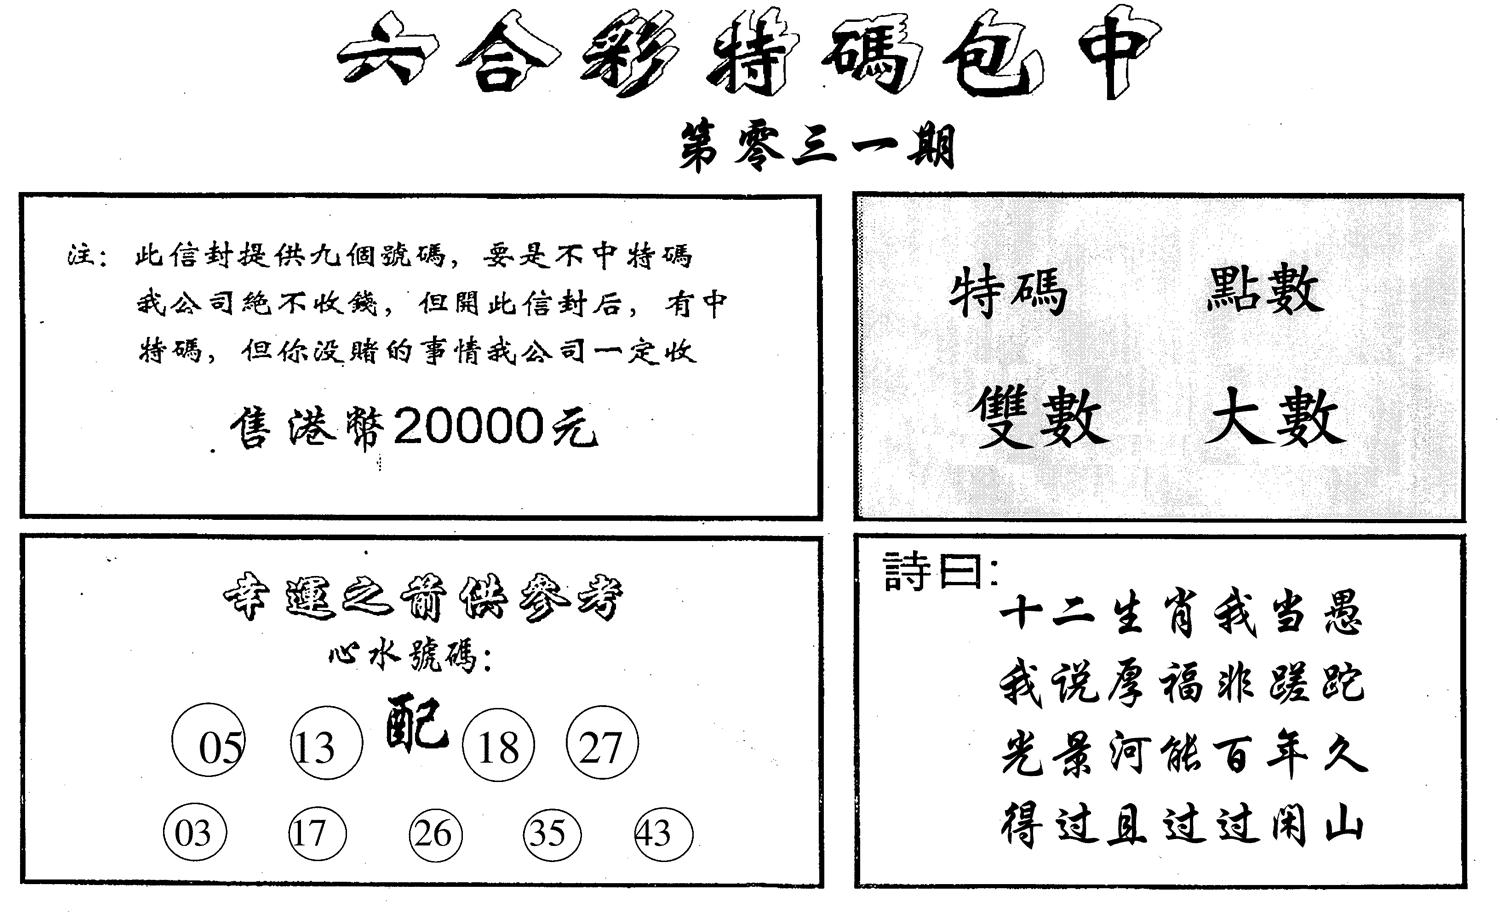 六合彩特碼包中
第零三一期
注：此信封提供九個號碼，要是不中特碼
我公司絕不收錢，但開此信封后，有中
特碼，但你没賭的事情我公司一定收
售港幣20000元
特碼 點數
雙數 大數
幸運之箭供參考
心水號碼：
05 13 配 18 27
03 17 26 35 43
詩曰：
十二生肖我当愚
我说厚福非蹉跎
光景河能百年久
得过且过过闲山